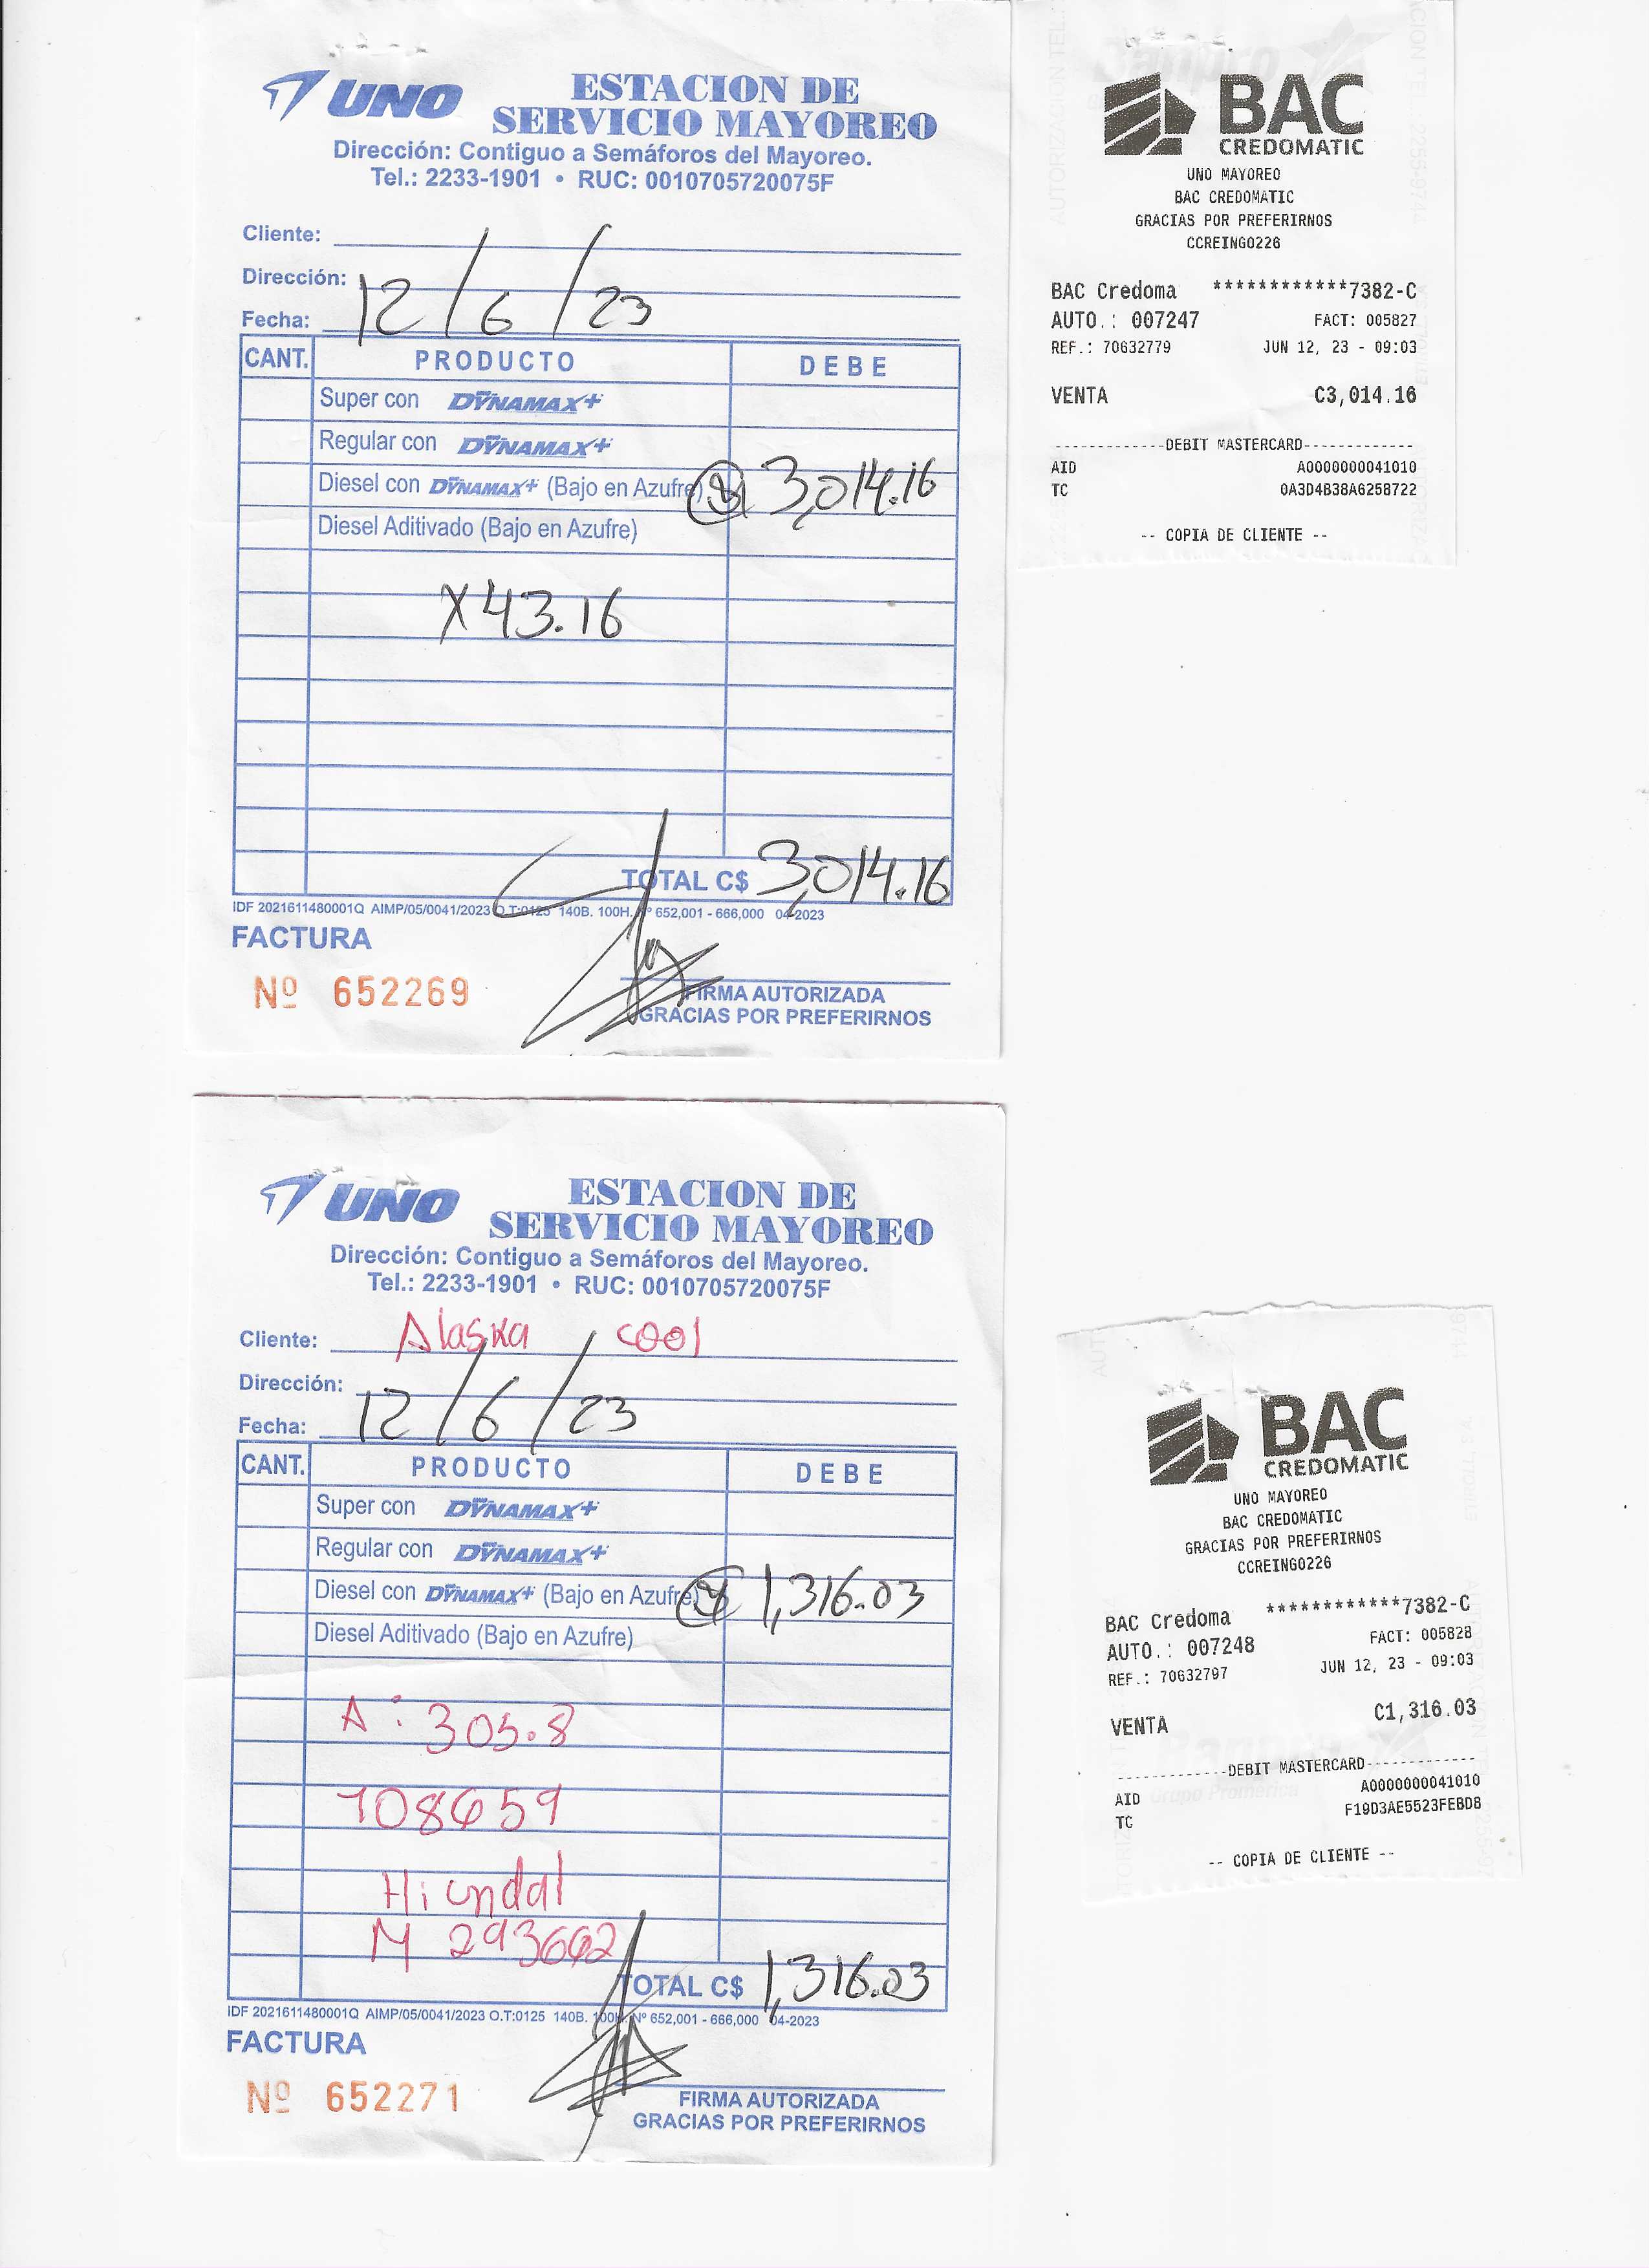 UNO ESTACION DE
SERVICIO MAYOREO
Dirección: Contiguo a Semáforos del Mayoreo.
Tel.: 2233-1901 • RUC: 0010705720075F
Cliente:
Dirección:
Fecha: 12/6/23
CANT. PRODUCTO DEBE
Super con DYNAMAX+
Regular con DYNAMAX+
Diesel con DYNAMAX+ (Bajo en Azufre) 3,014.16
Diesel Aditivado (Bajo en Azufre)
X43.16
TOTAL C$ 3,014.16
IDF 2021611480001Q AIMP/05/0041/2023 O.T:0125 140B. 100H. Nº 652,001 - 666,000 04-2023
FACTURA
Nº 652269
FIRMA AUTORIZADA
GRACIAS POR PREFERIRNOS
BAC
CREDOMATIC
UNO MAYOREO
BAC CREDOMATIC
GRACIAS POR PREFERIRNOS
CCREING0226
BAC Credoma ************7382-C
AUTO.: 007247 FACT: 005827
REF.: 70632779 JUN 12, 23 - 09:03
VENTA C3,014.16
------------DEBIT MASTERCARD------------
AID A0000000041010
TC 0A3D4B38A6258722
-- COPIA DE CLIENTE --
UNO ESTACION DE
SERVICIO MAYOREO
Dirección: Contiguo a Semáforos del Mayoreo.
Tel.: 2233-1901 • RUC: 0010705720075F
Cliente: Alaska cool
Dirección:
Fecha: 12/6/23
CANT. PRODUCTO DEBE
Super con DYNAMAX+
Regular con DYNAMAX+
Diesel con DYNAMAX+ (Bajo en Azufre) 1,316.03
Diesel Aditivado (Bajo en Azufre)
A: 305.8
108659
Hiundal
M 293662
TOTAL C$ 1,316.03
IDF 2021611480001Q AIMP/05/0041/2023 O.T:0125 140B. 100H. Nº 652,001 - 666,000 04-2023
FACTURA
Nº 652271
FIRMA AUTORIZADA
GRACIAS POR PREFERIRNOS
BAC
CREDOMATIC
UNO MAYOREO
BAC CREDOMATIC
GRACIAS POR PREFERIRNOS
CCREING0226
BAC Credoma ************7382-C
AUTO.: 007248 FACT: 005828
REF.: 70632797 JUN 12, 23 - 09:03
VENTA C1,316.03
------------DEBIT MASTERCARD------------
AID A0000000041010
TC F19D3AE5523FEBD8
-- COPIA DE CLIENTE --